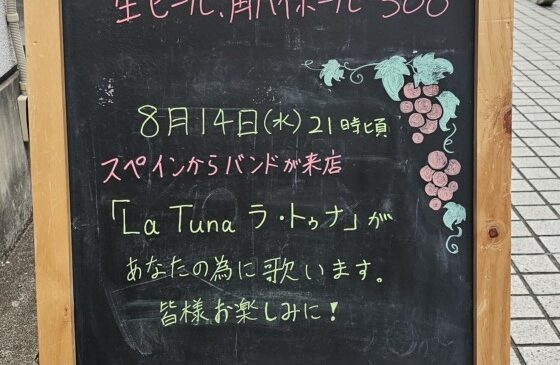 生ビール、角ハイボール 300
8月14日(水)21時頃
スペインからバンドが来店
「La Tuna ラ・トゥナ」が
あなたの為に歌います。
皆様お楽しみに!